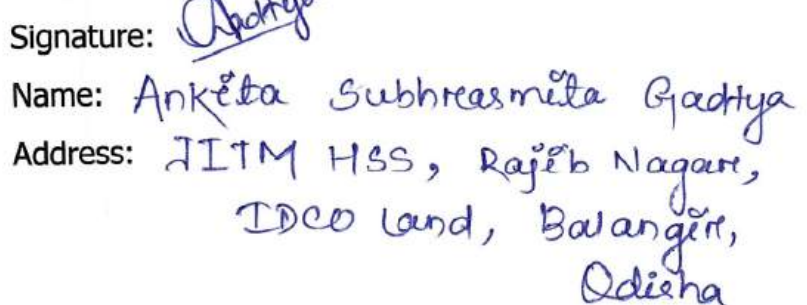 Signature: Gadtya
Name: Ankita Subhrasmita Gadtya
Address: JITM HSS, Rajib Nagar,
IDCO Land, Balangir,
Odisha